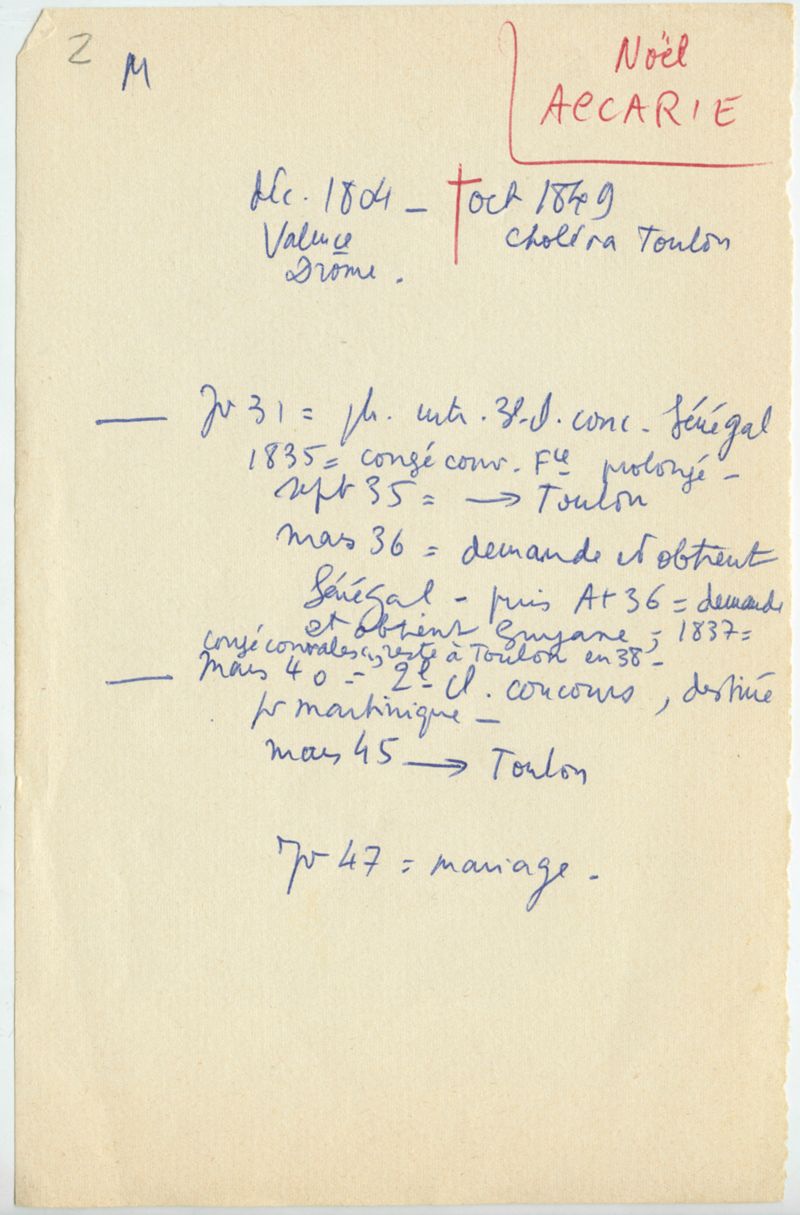 2
M
Noël
ACCARIE
déc. 1804 — † oct 1849
Valence choléra Toulon
Drôme.
— Jv 31 = ph. entr. 3e cl. conc. Sénégal
1835 = congé conv. Fce prolongé —
sept 35 = → Toulon
mars 36 = demande et obtient
Sénégal — puis At 36 = demande
et obtient Guyane ; 1837 =
congé convalesc, reste à Toulon en 38 —
— mars 40 = 2e cl. concours, destiné
pr martinique —
mars 45 → Toulon
Jv 47 = mariage.